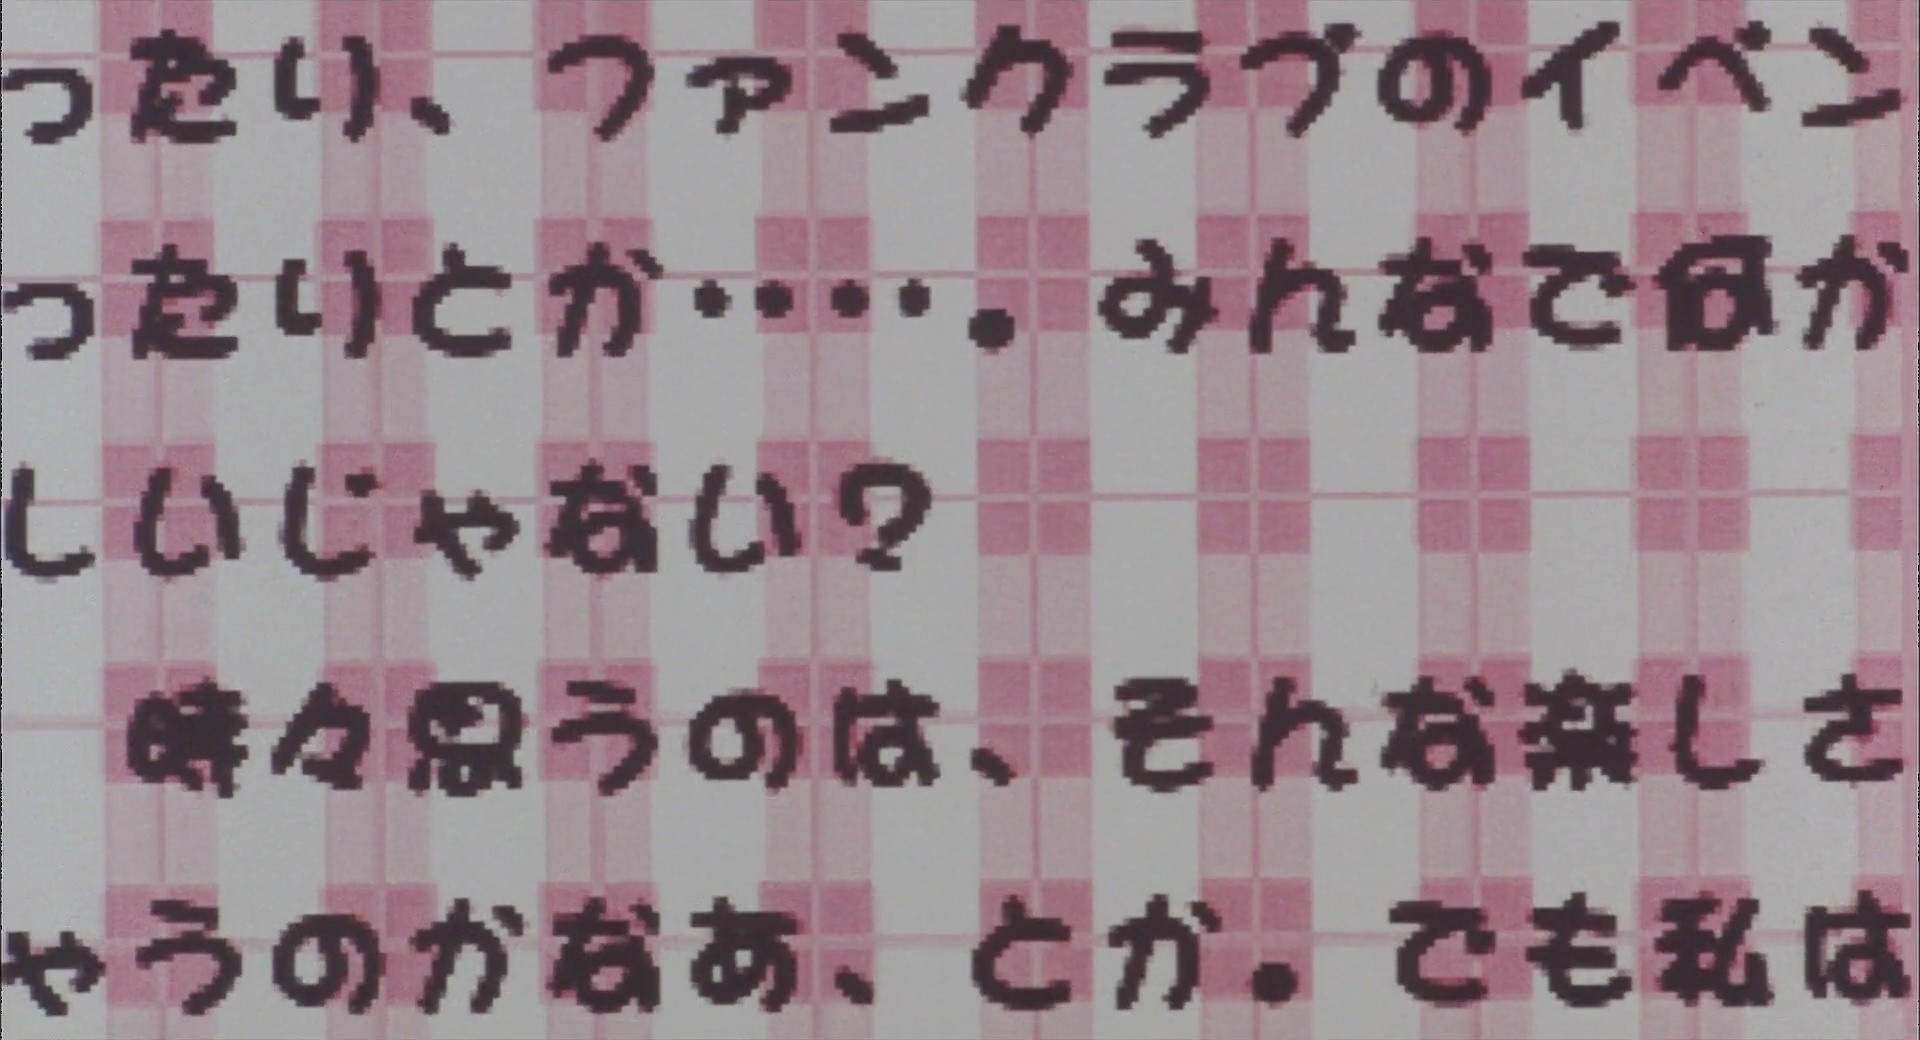 ったり、ファンクラブのイベン
ったりとか・・・・。みんなで何か
しいじゃない?
時々思うのは、そんな楽しさ
ゃうのかなあ、とか。でも私は